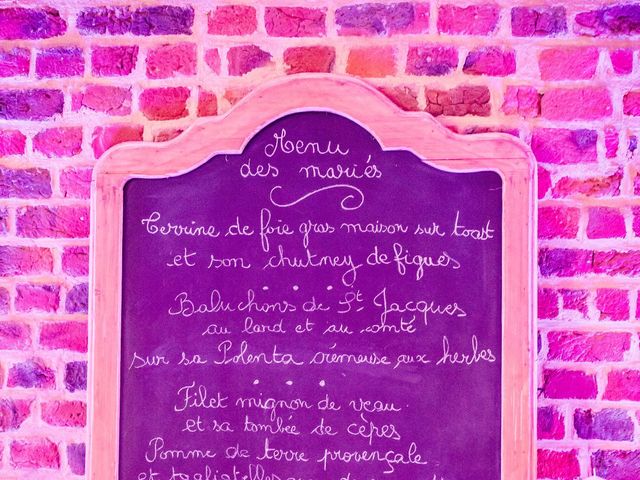 Menu
des mariés
Terrine de foie gras maison sur toast
et son chutney de figues
Baluchons de St Jacques
au lard et au comté
sur sa Polenta crémeuse aux herbes
Filet mignon de veau
et sa tombée de cèpes
Pomme de terre provençale
et tagliatelles